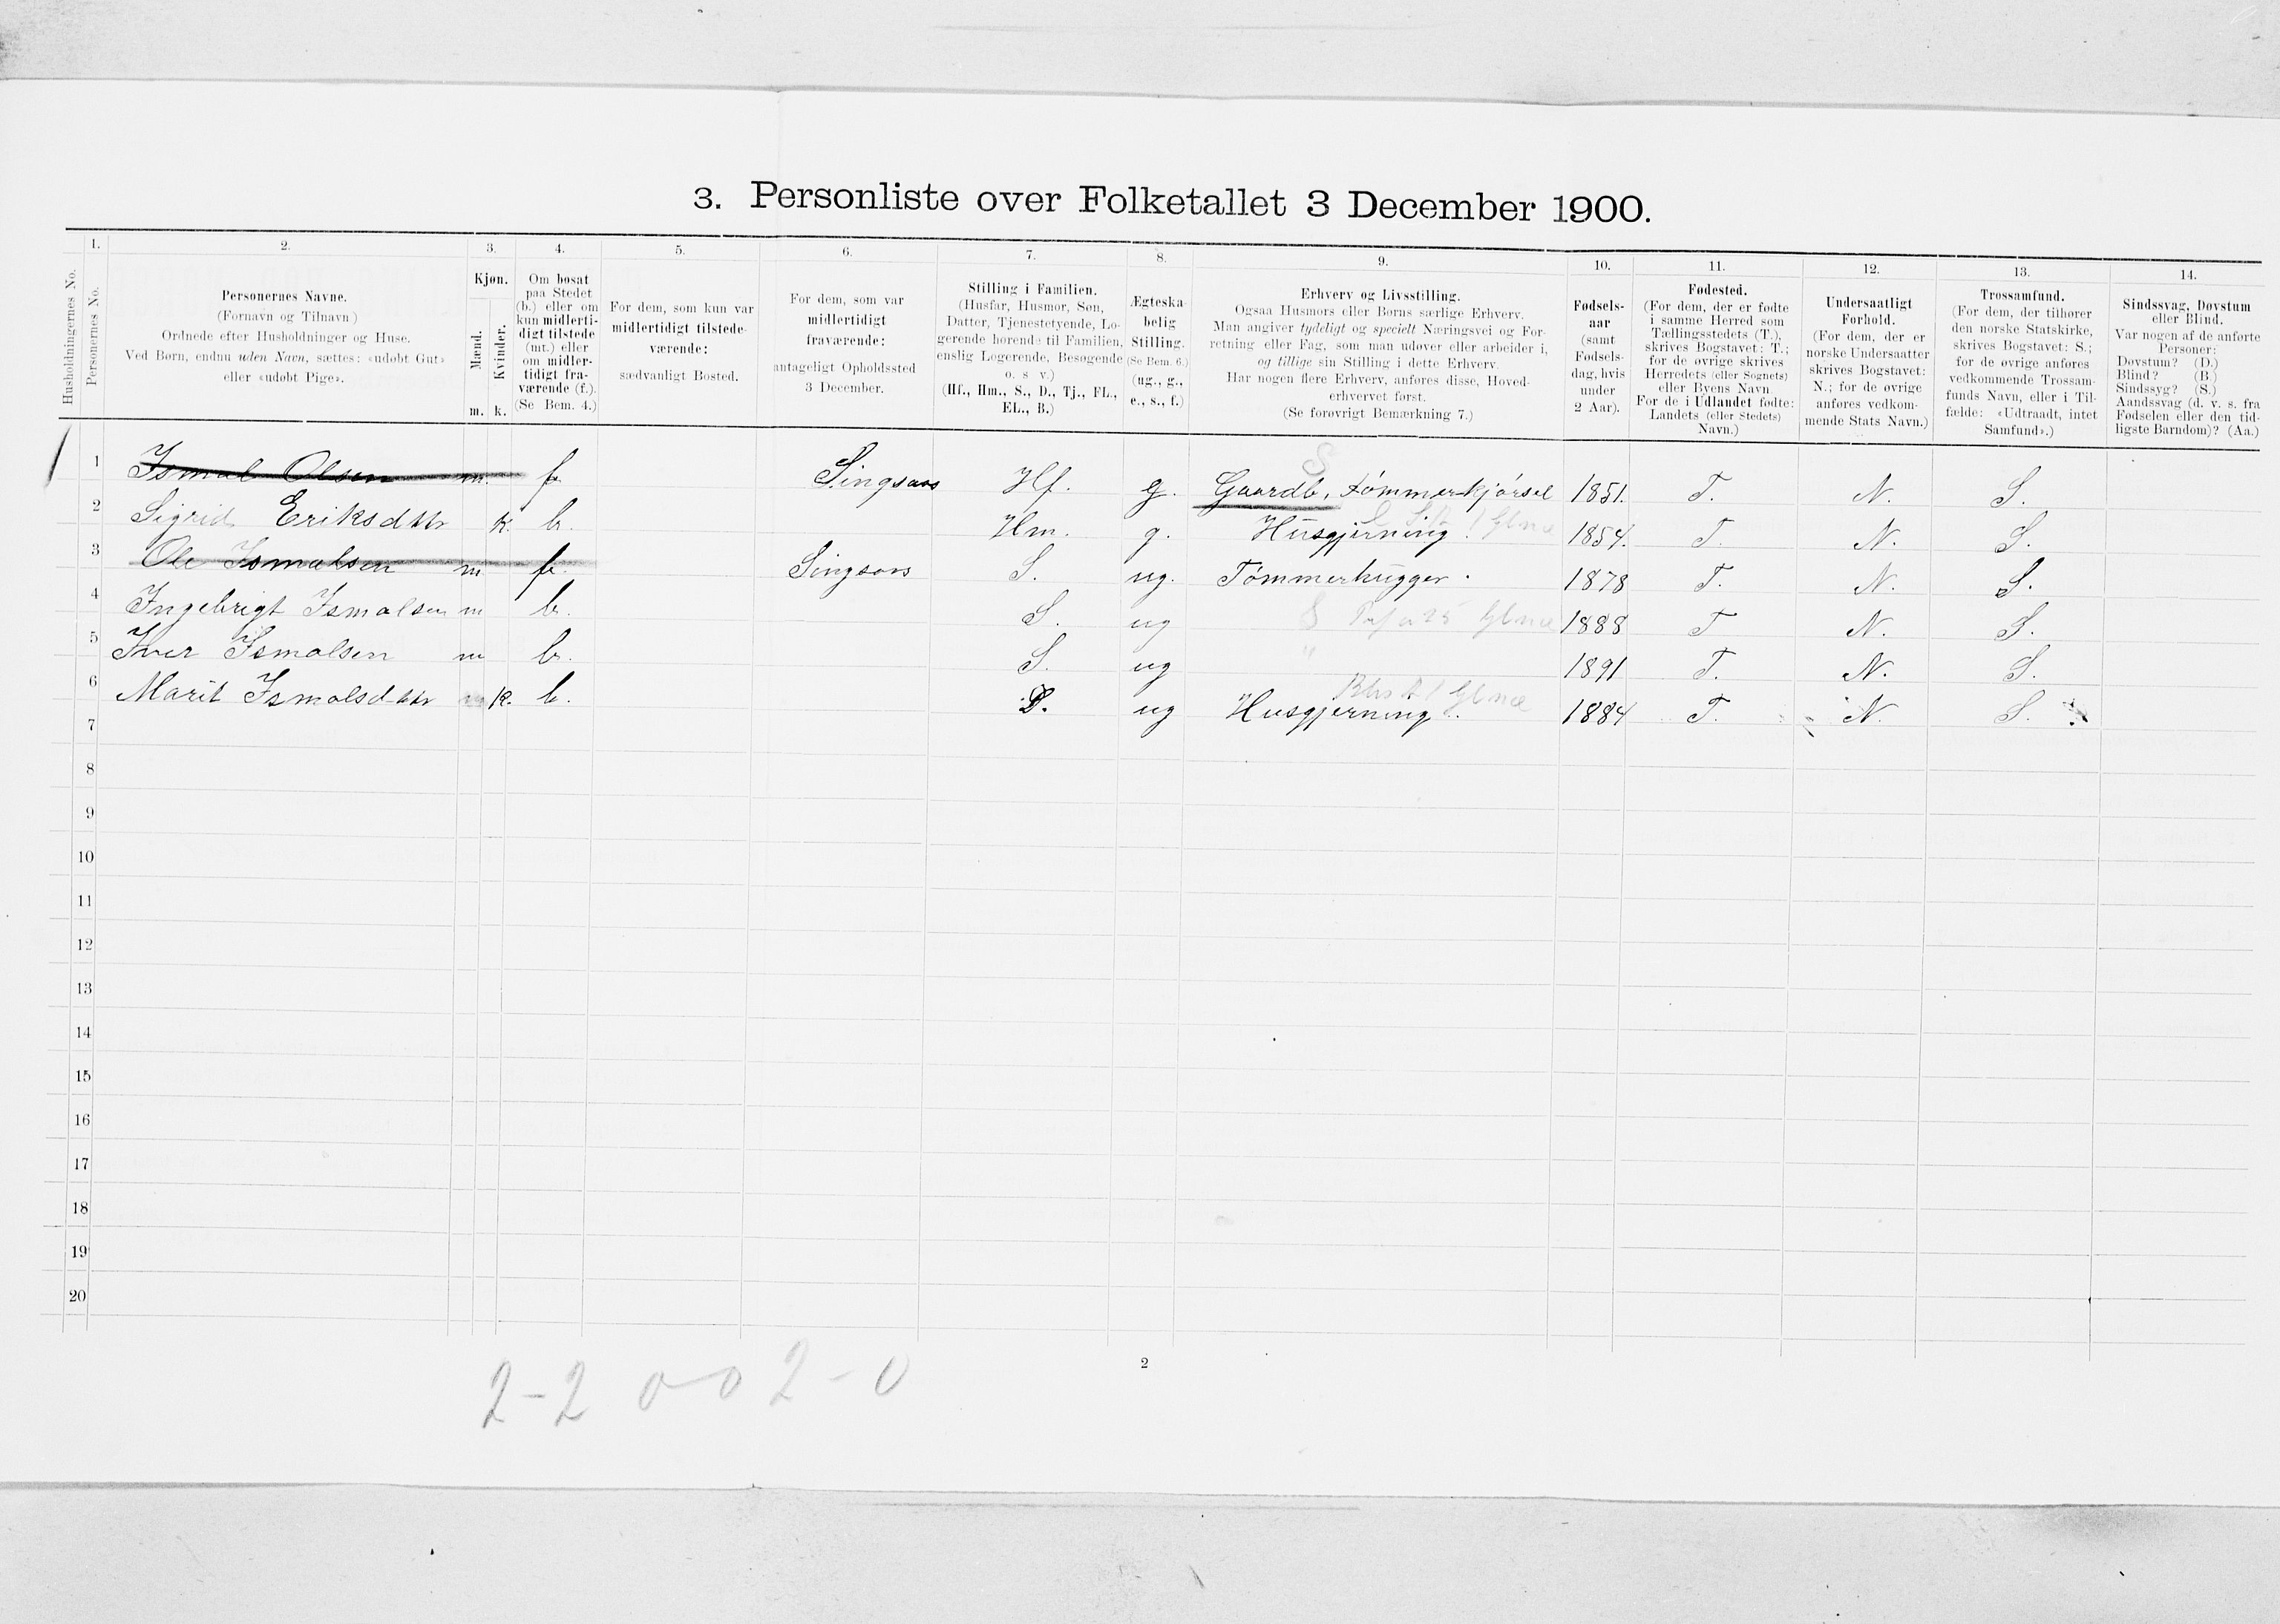 3. Personliste over Folketallet 3 December 1900.
1. 2. 3. 4. 5. 6. 7. 8. 9. 10. 11. 12. 13. 14.
Husholdningernes No.
Personernes No.
Personernes Navne.
(Fornavn og Tilnavn)
Ordnede efter Husholdninger og Huse.
Ved Børn, endnu uden Navn, sættes: «udøbt Gut»
eller «udøbt Pige».
Kjøn.
Mænd.
Kvinder.
m. k.
Om bosat
paa Stedet
(b.) eller om
kun midlerti-
digt tilstede
(mt.) eller
om midler-
tidigt fra-
værende (f.).
(Se Bem. 4.)
For dem, som kun var
midlertidigt tilstede-
værende:
sædvanligt Bosted.
For dem, som var
midlertidigt
fraværende:
antageligt Opholdssted
3 December.
Stilling i Familien.
(Husfar, Husmor, Søn,
Datter, Tjenestetyende, Lo-
gerende hørende til Familien,
enslig Logerende, Besøgende
o. s v.)
(Hf., Hm., S., D., Tj., FL.,
EL., B.)
Ægteska-
belig
Stilling.
(Se Bem. 6.)
(ug., g.,
e., s., f.)
Erhverv og Livsstilling.
Ogsaa Husmors eller Børns særlige Erhverv.
Man angiver tydeligt og specielt Næringsvei og For-
retning eller Fag, som man udøver eller arbeider i,
og tillige sin Stilling i dette Erhverv.
Har nogen flere Erhverv, anføres disse, Hoved-
erhvervet først.
(Se forøvrigt Bemærkning 7.)
Fødsels-
aar
(samt
Fødsels-
dag, hvis
under
2 Aar).
Fødested.
(For dem, der er fødte
i samme Herred som
Tællingsstedets (T.),
skrives Bogstavet: T.;
for de øvrige skrives
Herredets (eller Sognets)
eller Byens Navn
For de i Udlandet fødte:
Landets (eller Stedets)
Navn.)
Undersaatligt
Forhold.
(For dem, der er
norske Undersaatter
skrives Bogstavet:
N.; for de øvrige
anføres vedkom-
mende Stats Navn.)
Trossamfund.
(For dem, der tilhører
den norske Statskirke,
skrives Bogstavet: S.;
for de øvrige anføres
vedkommende Trossam-
funds Navn, eller i Til-
fælde: «Udtraadt, intet
Samfund».)
Sindssvag, Døvstum
eller Blind.
Var nogen af de anførte
Personer:
Døvstum? (D.)
Blind? (B.)
Sindssyg? (S.)
Aandssvag (d. v. s. fra
Fødselen eller den tid-
ligste Barndom)? (Aa.)
1 Ismal Olsen m. f. Singsaas Hf. g. Gaardb, Tømmerkjørsel 1851. T. N. S.
2 Sigrid Eriksdttr k. b. Hm. g. Husgjerning. 1854. T. N. S.
3 Ole Ismalsen m f. Singsaas S. ug. Tømmerhugger. 1878 T. N. S.
4 Ingebrigt Ismalsen m b. S. ug 1888 T N. S.
5 Iver Ismalsen m b. S. ug " 1891 T. N. S.
6 Marit Ismalsdttr k. b. D. ug Husgjerning. 1884 T. N. S.
7
8
9
10
11
12
13
14
15
16
17
18
19
20
2
2-2 0-0 2-0